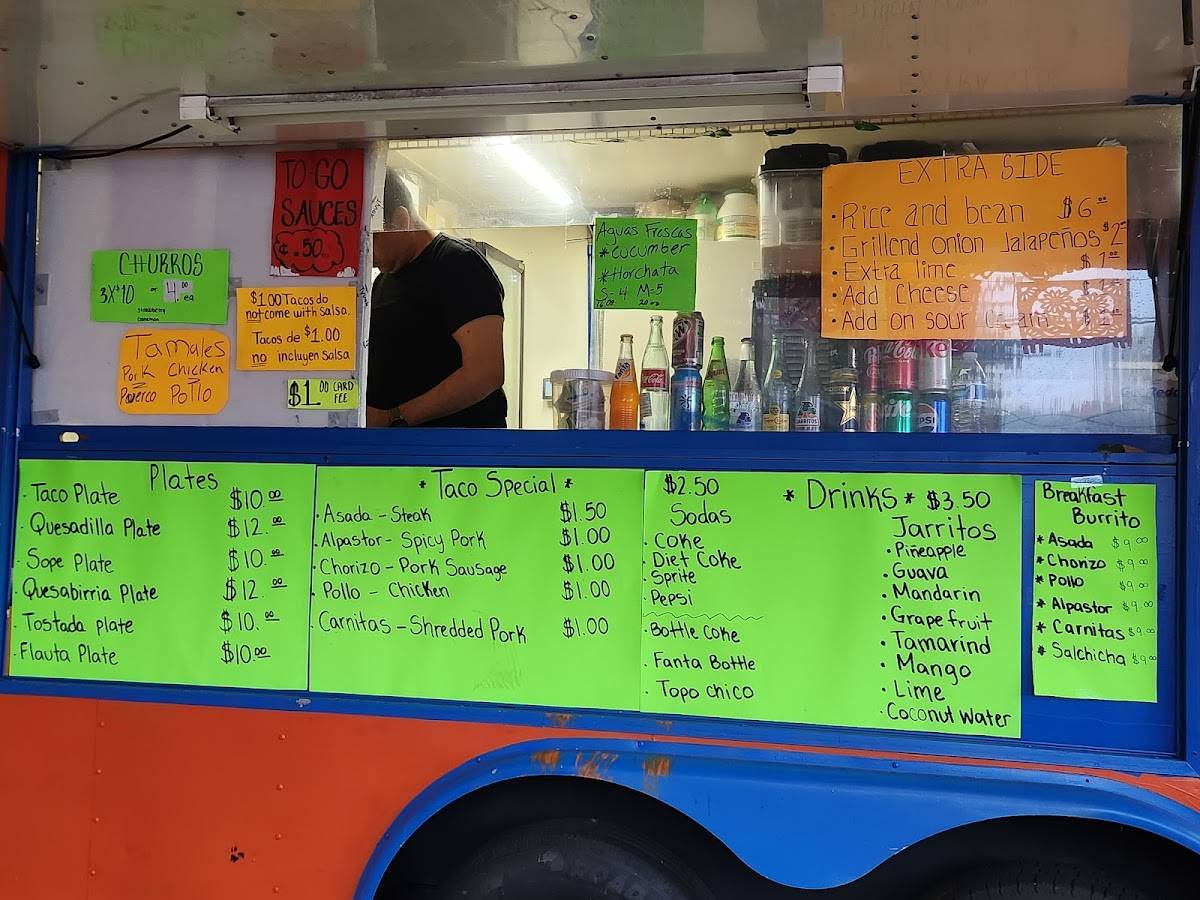 TO-GO
SAUCES
¢.50
CHURROS
3X$10 or 4.00 ea
strawberry
$1.00 Tacos do
not come with salsa.
Tacos de $1.00
no incluyen salsa
Tamales
Pork Chicken
Puerco Pollo
$1.00 CARD
FEE
Aguas Frescas
*cucumber
*Horchata
S-4 M-5
16oz 20oz
EXTRA SIDE
• Rice and bean $6.00
• Grillend onion Jalapeños $2
• Extra lime
• Add Cheese
• Add on sour
Plates
• Taco Plate $10.00
• Quesadilla Plate $12.00
• Sope Plate $10.00
• Quesabirria Plate $12.00
• Tostada plate $10.00
• Flauta Plate $10.00
* Taco Special *
• Asada - Steak $1.50
• Alpastor - Spicy Pork $1.00
• Chorizo - Pork Sausage $1.00
• Pollo - Chicken $1.00
• Carnitas - Shredded Pork $1.00
* Drinks *
$2.50
Sodas
• Coke
• Diet Coke
• Sprite
• Pepsi
• Bottle Coke
• Fanta Bottle
• Topo chico
$3.50
Jarritos
• Pineapple
• Guava
• Mandarin
• Grapefruit
• Tamarind
• Mango
• Lime
• Coconut Water
Breakfast
Burrito
* Asada $9.00
* Chorizo $9.00
* Pollo $9.00
* Alpastor $9.00
* Carnitas $9.00
* Salchicha $9.00
Coca-Cola
pepsi